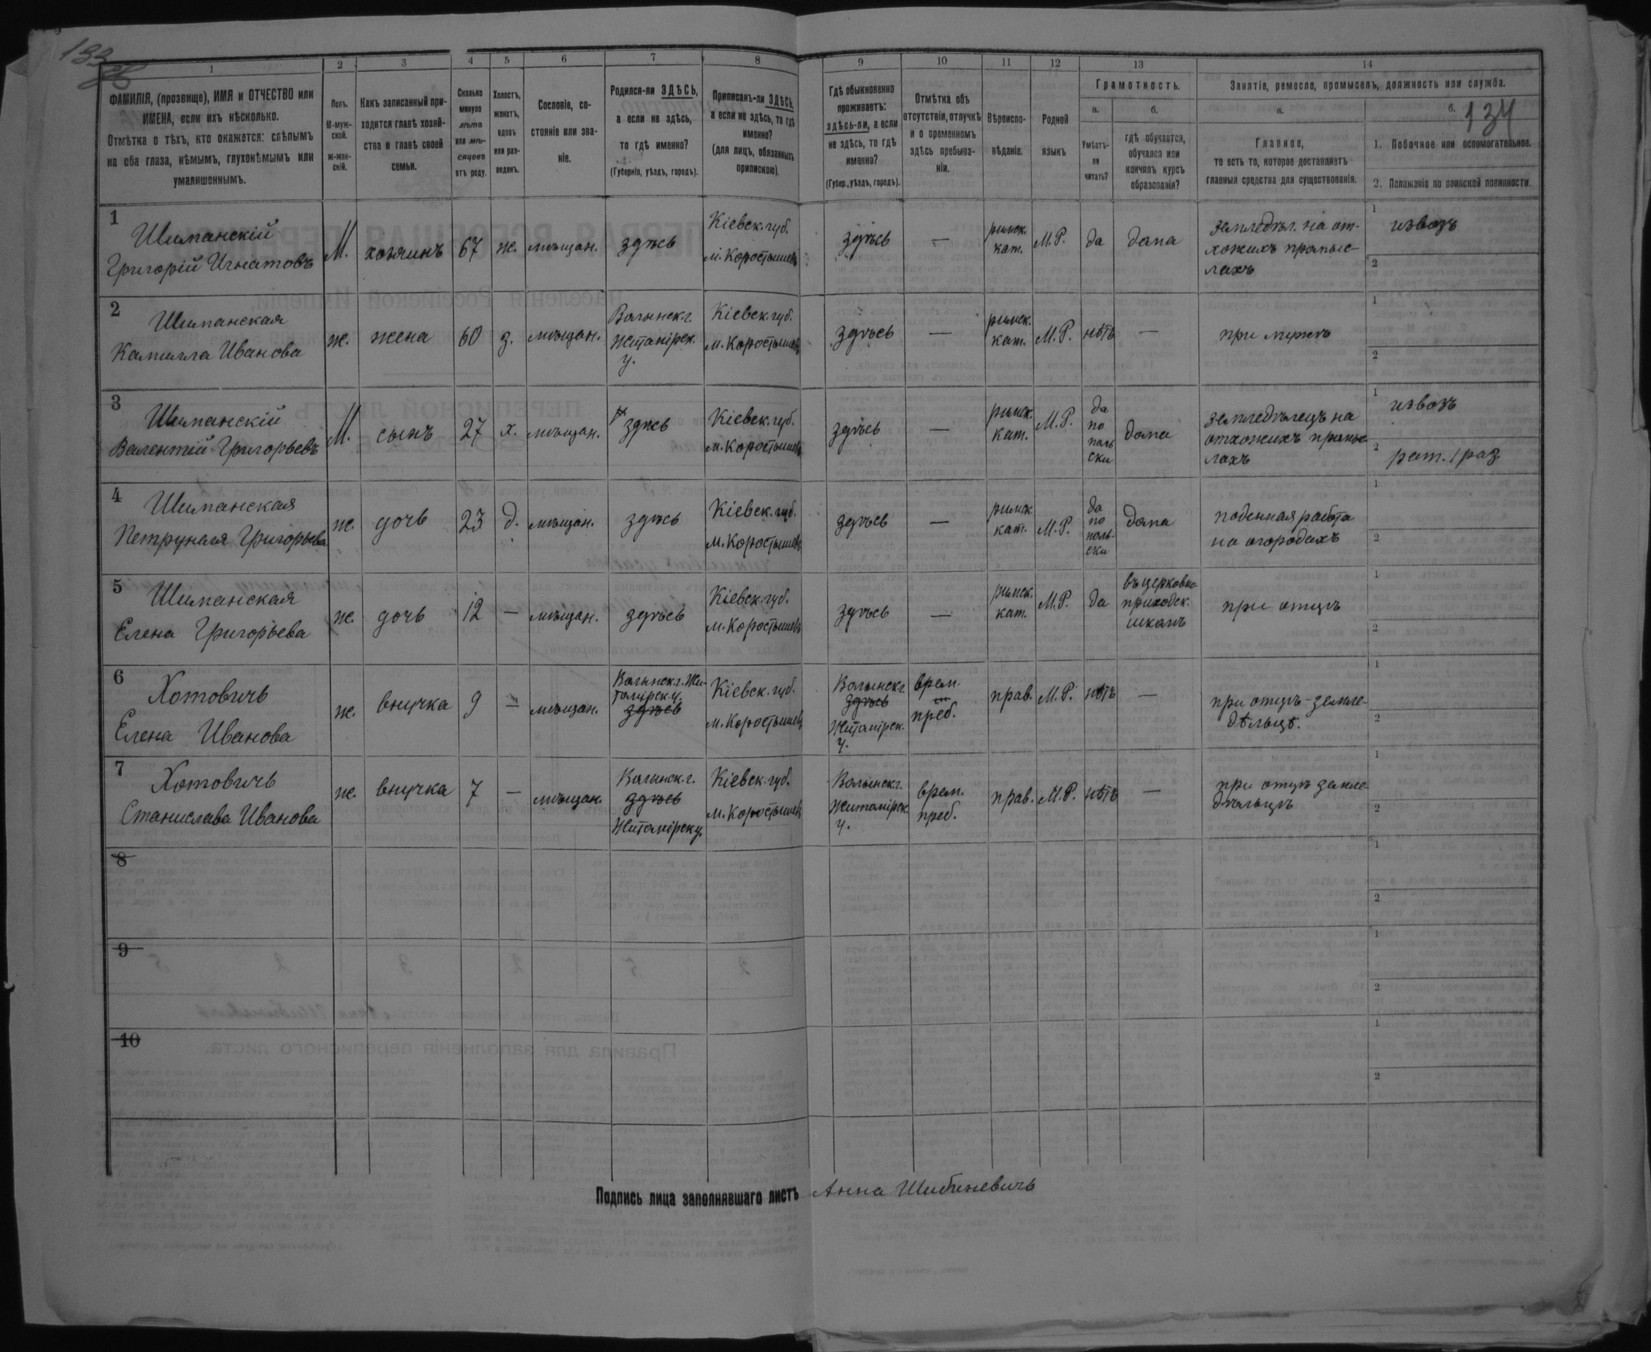 133
134
1 2 3 4 5 6 7 8 9 10 11 12 13 14
ФАМИЛІЯ, (прозвище), ИМЯ и ОТЧЕСТВО или
ИМЕНА, если ихъ нѣсколько.
Отмѣтка о тѣхъ, кто окажется: слѣпымъ
на оба глаза, нѣмымъ, глухонѣмымъ или
умалишеннымъ.
Полъ.
М-муж-
ской.
ж-жен-
скій.
Какъ записанный при-
ходится главѣ хозяй-
ства и главѣ своей
семьи.
Сколько
минуло
лѣтъ
или мѣ-
сяцевъ
отъ роду.
Холостъ,
женатъ,
вдовъ
или раз-
веденъ.
Сословіе, со-
стояніе или зва-
ніе.
Родился-ли ЗДѢСЬ,
а если не здѣсь,
то гдѣ именно?
(Губернія, уѣздъ, городъ).
Приписанъ-ли ЗДѢСЬ,
а если не здѣсь, то гдѣ
именно?
(для лицъ, обязанныхъ
припискою).
Гдѣ обыкновенно
проживаетъ:
здѣсь-ли, а если
не здѣсь, то гдѣ
именно?
(Губер., уѣздъ, городъ).
Отмѣтка объ
отсутствіи, отлучкѣ
и о временномъ
здѣсь пребыва-
ніи.
Вѣроиспо-
вѣданіе.
Родной
языкъ.
Грамотность.
а.
Умѣетъ-
ли
читать?
б.
гдѣ обучается,
обучался или
кончилъ курсъ
образованія?
Занятіе, ремесло, промыселъ, должность или служба.
а.
Главное,
то есть то, которое доставляетъ
главныя средства для существованія.
б.
1. Побочное или вспомогательное.
2. Положеніе по воинской повинности.
1
Шиманскій
Григорій Игнатовъ
М.
хозяинъ
67
ж.
мѣщан.
здѣсь
Кіевск. губ.
м. Коростышев
здѣсь
—
римск.
кат.
М.Р.
да
дома
земледѣл. на от-
хожихъ промыс-
лахъ
1 извозъ
2
2
Шиманская
Камилла Иванова
ж.
жена
60
з.
мѣщан.
Волынск. г.
Житомірск.
у.
Кіевск. губ.
м. Коростышев
здѣсь
—
римск.
кат.
М.Р.
нѣтъ
—
при мужѣ
1
2
3
Шиманскій
Валентій Григорьевъ
М.
сынъ
27
х.
мѣщан.
здѣсь
Кіевск. губ.
м. Коростышев
здѣсь
—
римск.
кат.
М.Р.
да
по
поль
ски
дома
земледѣлецъ на
отхожихъ промыс
лахъ
1 извозъ
2 рат. 1 раз
4
Шиманская
Петрунеля Григорьева
ж.
дочь
23
д.
мѣщан.
здѣсь
Кіевск. губ.
м. Коростышев
здѣсь
—
римск.
кат.
М.Р.
да
по
поль-
ски
дома
поденная работа
на огородахъ
1
2
5
Шиманская
Елена Григорьева
ж.
дочь
12
—
мѣщан.
здѣсь
Кіевск. губ.
м. Коростышев
здѣсь
—
римск.
кат.
М.Р.
да
въ церковно-
приходск.
школѣ
при отцѣ
1
2
6
Хотовичъ
Елена Иванова
ж.
внучка
9
—
мѣщан.
Волынск. г. Жи-
томірск. у.
здѣсь
Кіевск. губ.
м. Коростышев
Волынск. г.
здѣсь
Житомірск.
у.
врем.
преб.
прав.
М.Р.
нѣтъ
—
при отцѣ-земле-
дѣльцѣ.
1
2
7
Хотовичъ
Станислава Иванова
ж.
внучка
7
—
мѣщан.
Волынск. г.
здѣсь
Житомірск. у.
Кіевск. губ.
м. Коростышев
Волынск. г.
Житомірск.
у.
врем.
преб.
прав.
М.Р.
нѣтъ
—
при отцѣ земле
дѣльцѣ
1
2
8
1
2
9
1
2
10
1
2
Подпись лица заполнявшаго листъ Анна Шибиневичъ